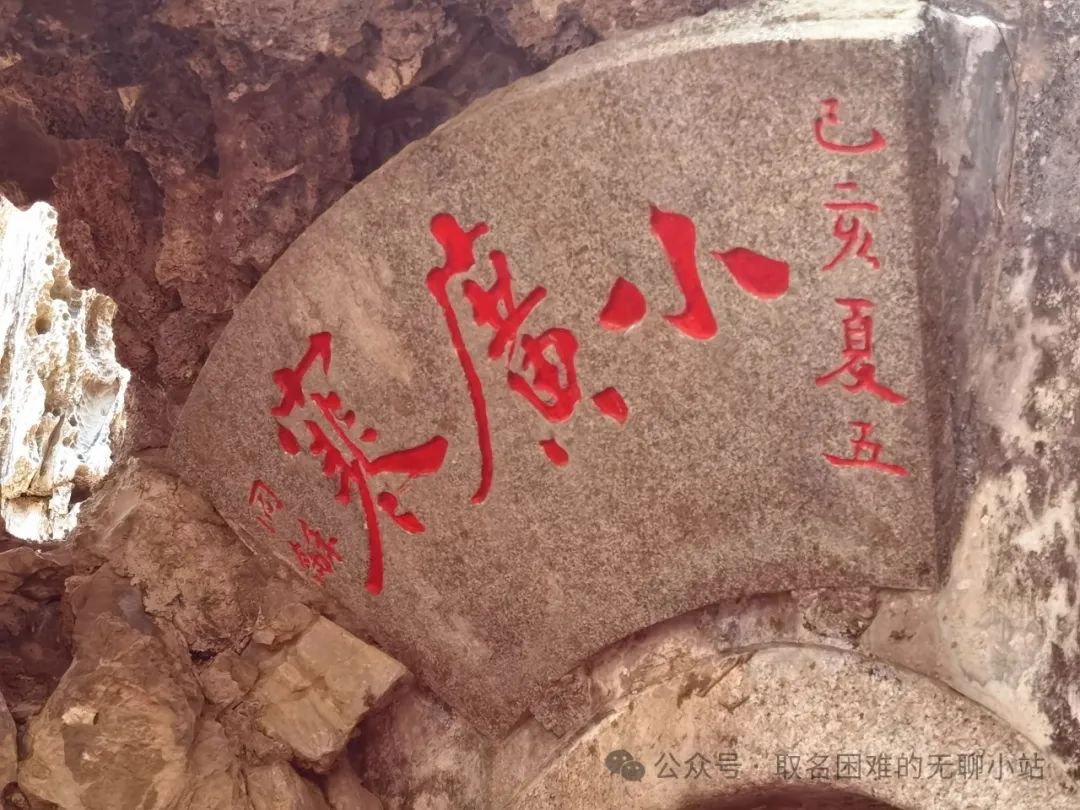 己亥夏五
小廣寒
公众号 · 取名困难的无聊小站